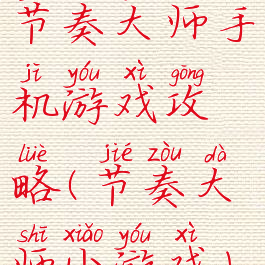 节奏大师手
jī yóu xì gōng
机游戏攻
lüè jié zòu dà
略(节奏大
shī xiǎo yóu xì
师小游戏)